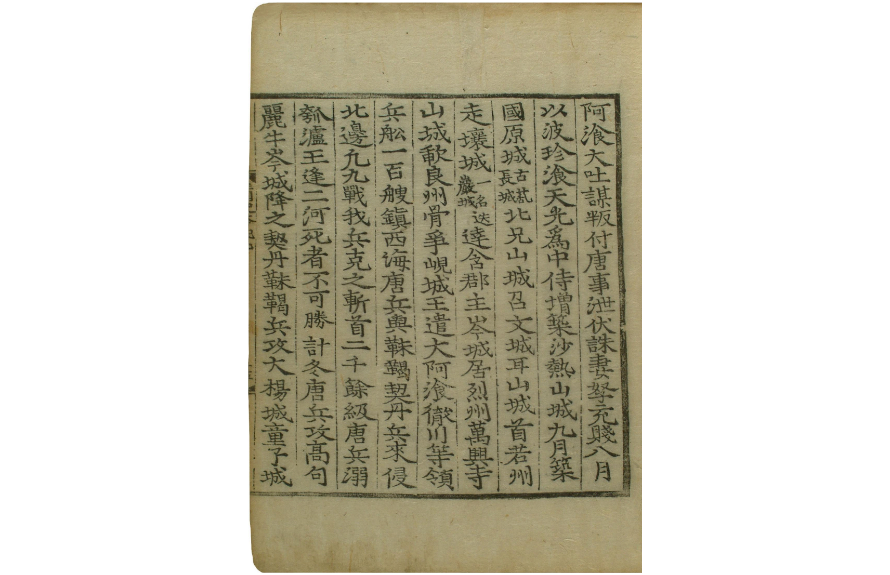 阿飡大吐謀叛付唐事泄伏誅妻孥充賤八月
以波珍飡天光爲中侍增築沙熱山城九月築
國原城古薍長城北兄山城召文城耳山城首若州
走壤城一名迭巖城達含郡主岑城居烈州萬興寺
山城歃良州骨爭峴城王遣大阿飡徹川等領
兵舩一百艘鎭西海唐兵與靺鞨契丹兵來侵
北邊凢九戰我兵克之斬首二千餘級唐兵溺
瓠瀘王逢二河死者不可勝計冬唐兵攻髙句
麗牛岑城降之契丹靺鞨兵攻大楊城童子城